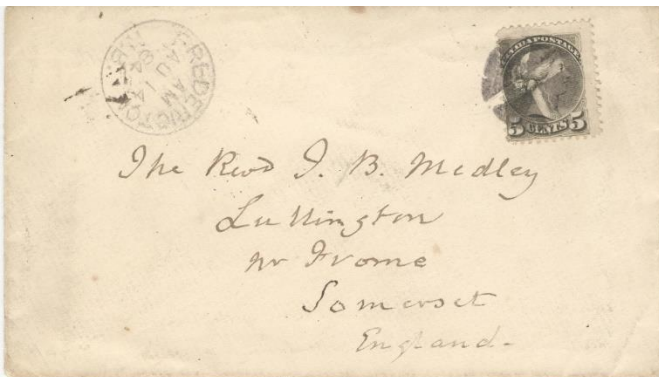 FREDERICTON N.B.
AM
AU 14
84
POSTAGE
5 CENTS 5
The Revd J. B. Medley
Lullington
nr Frome
Somerset
England.